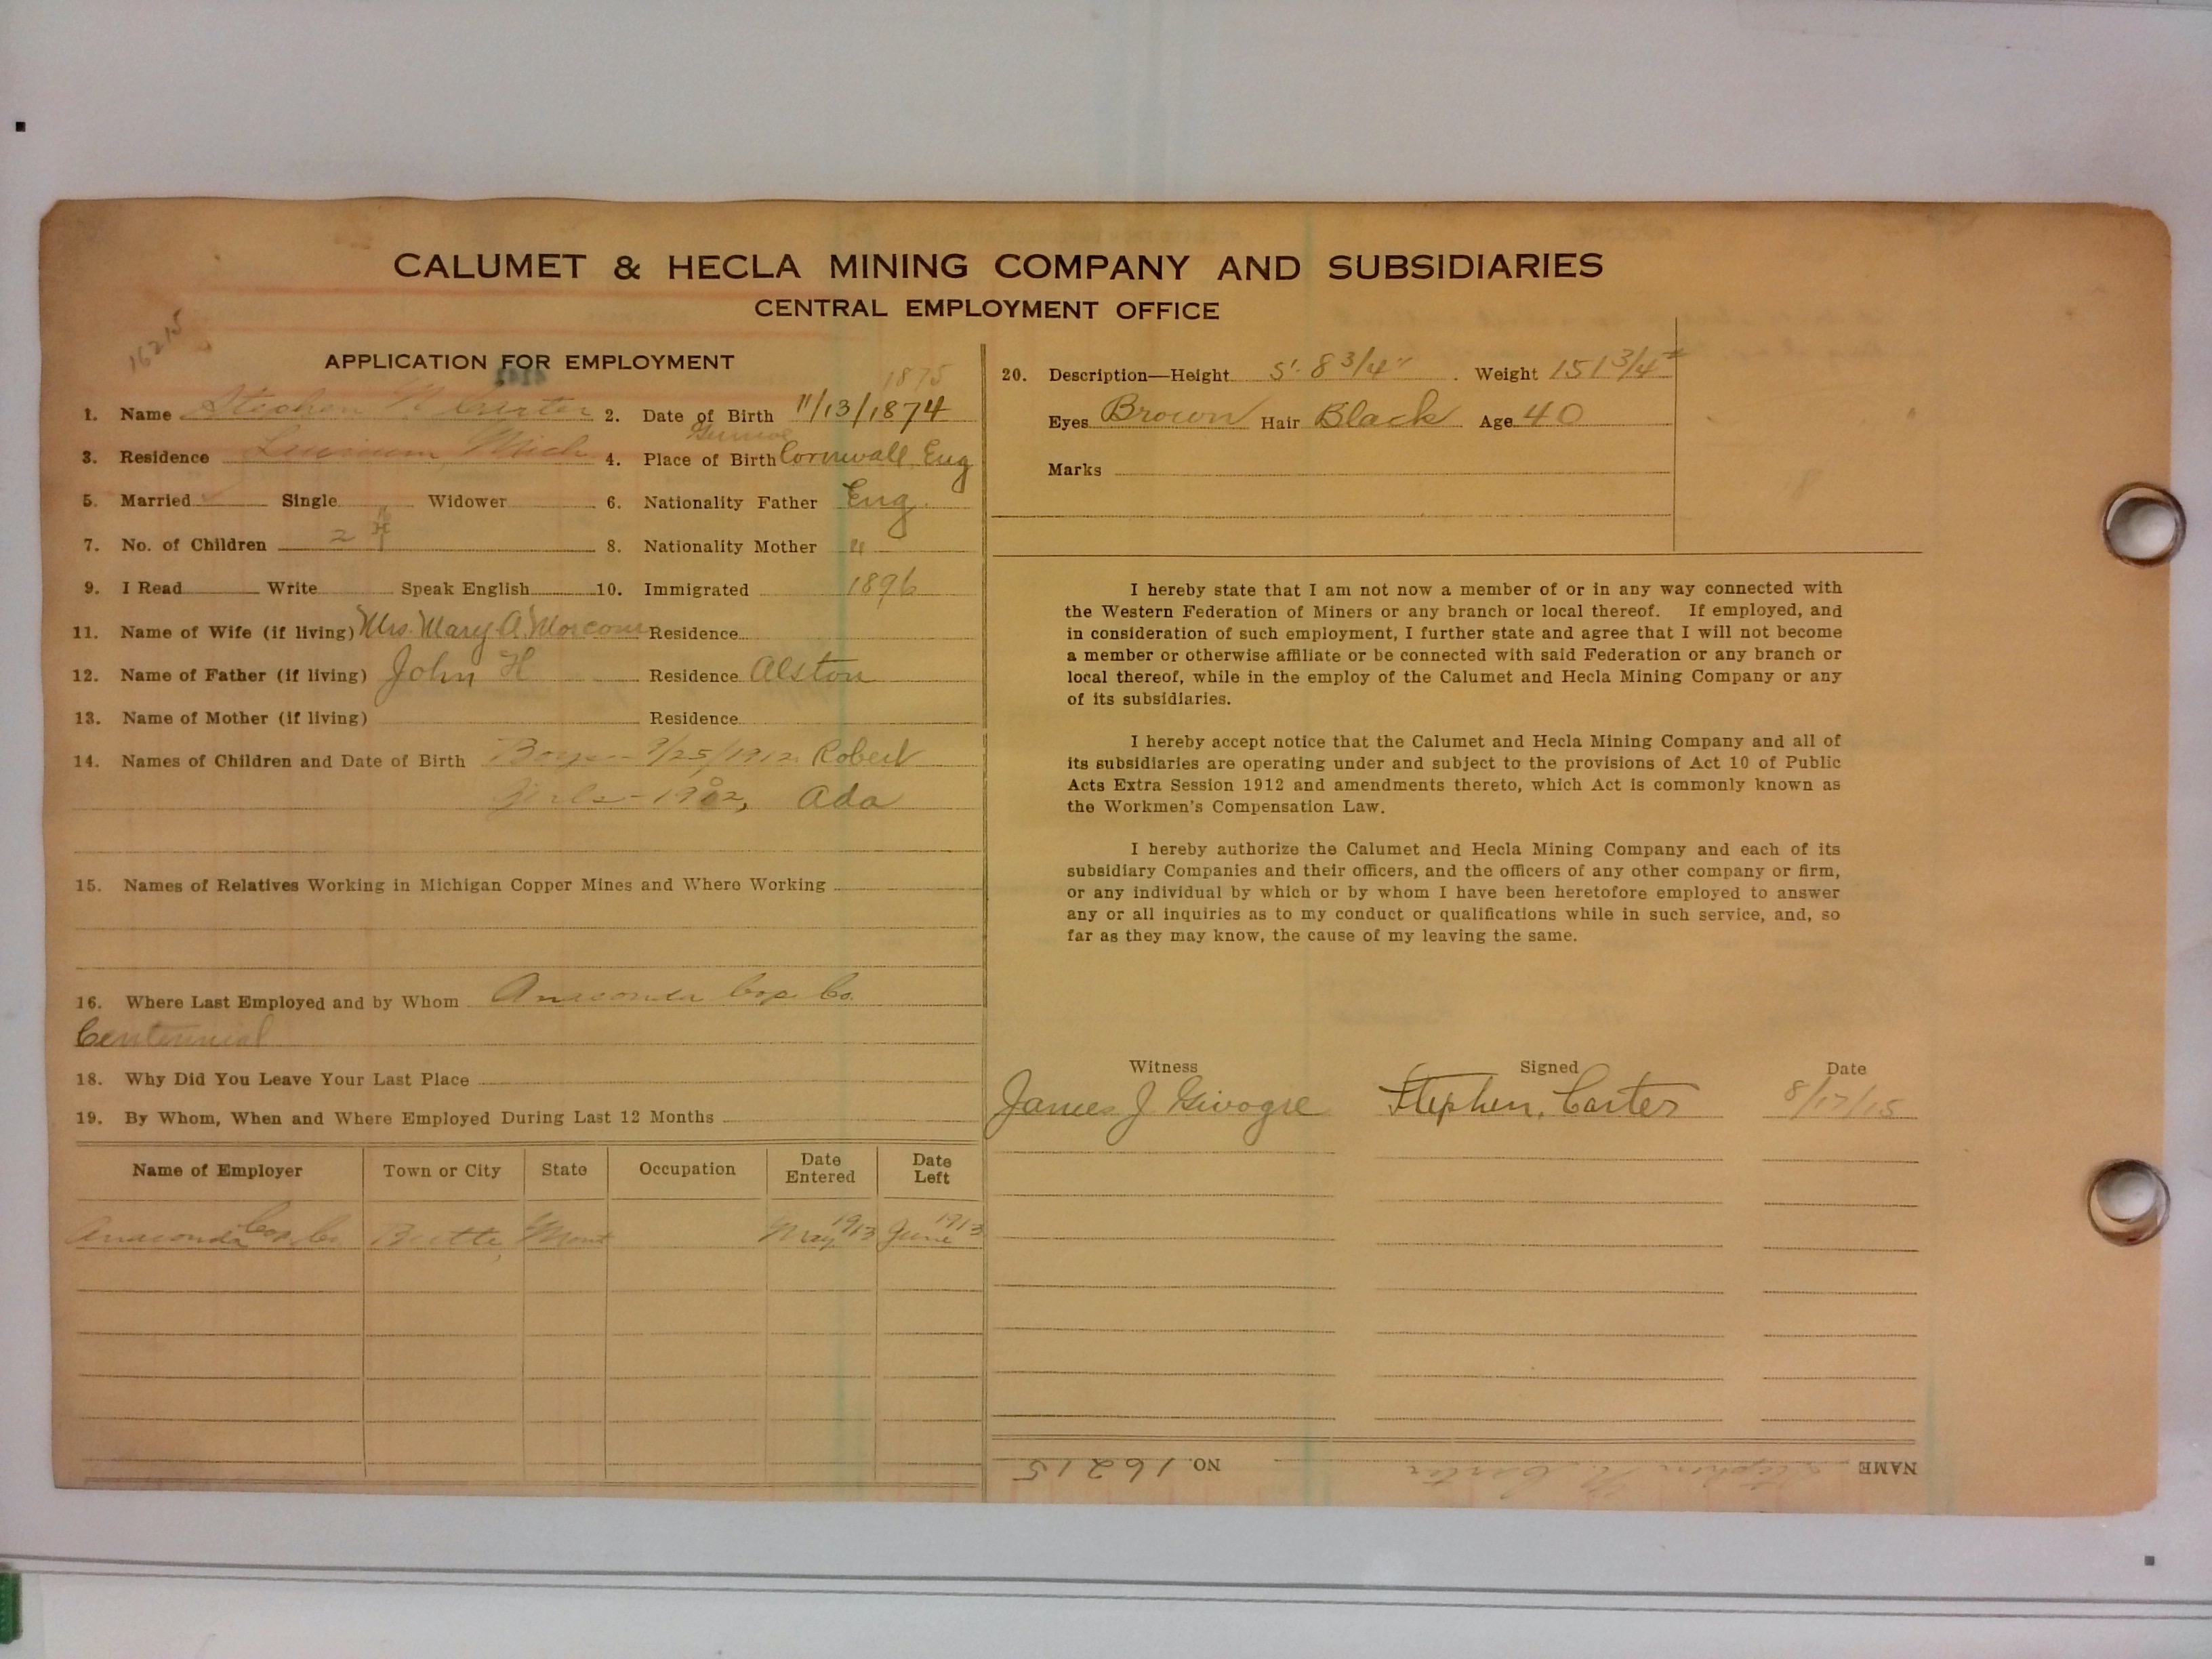 CALUMET & HECLA MINING COMPANY AND SUBSIDIARIES
CENTRAL EMPLOYMENT OFFICE
16215
APPLICATION FOR EMPLOYMENT
1875
1. Name Stephen Carter 2. Date of Birth 11/13/1874
3. Residence Laurium, Mich 4. Place of Birth Cornwall Eng
5. Married Single Widower 6. Nationality Father Eng.
7. No. of Children 2 8. Nationality Mother "
9. I Read Write Speak English 10. Immigrated 1896
11. Name of Wife (if living) Mrs. Mary A Morcom Residence
12. Name of Father (if living) John H Residence Alston
13. Name of Mother (if living) Residence
14. Names of Children and Date of Birth Boys - 9/25/1912 Robert
Girls - 1902, Ada
15. Names of Relatives Working in Michigan Copper Mines and Where Working
16. Where Last Employed and by Whom Anaconda Cop. Co.
Centennial
18. Why Did You Leave Your Last Place
19. By Whom, When and Where Employed During Last 12 Months
Name of Employer Town or City State Occupation Date Entered Date Left
Anaconda Cop. Co Butte, Mont May 1913 June 1913
20. Description—Height 5'. 8 3/4" . Weight 151 3/4 #
Eyes Brown Hair Black Age 40
Marks
I hereby state that I am not now a member of or in any way connected with
the Western Federation of Miners or any branch or local thereof. If employed, and
in consideration of such employment, I further state and agree that I will not become
a member or otherwise affiliate or be connected with said Federation or any branch or
local thereof, while in the employ of the Calumet and Hecla Mining Company or any
of its subsidiaries.
I hereby accept notice that the Calumet and Hecla Mining Company and all of
its subsidiaries are operating under and subject to the provisions of Act 10 of Public
Acts Extra Session 1912 and amendments thereto, which Act is commonly known as
the Workmen's Compensation Law.
I hereby authorize the Calumet and Hecla Mining Company and each of its
subsidiary Companies and their officers, and the officers of any other company or firm,
or any individual by which or by whom I have been heretofore employed to answer
any or all inquiries as to my conduct or qualifications while in such service, and, so
far as they may know, the cause of my leaving the same.
Witness Signed Date
James J. Stephen, Carter 8/17/15
NAME Stephen Carter NO. 16215